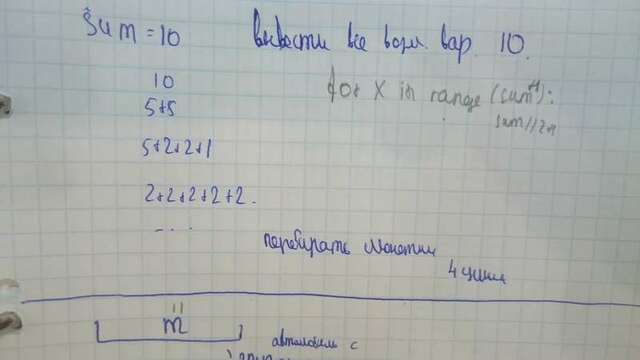 Sum = 10 вывести все возм. вар. 10.
10
for x in range (sum+1):
5+5
sum//2
5+2+2+1
2+2+2+2+2.
....
перебирать монетки
4
m
автомобиль с